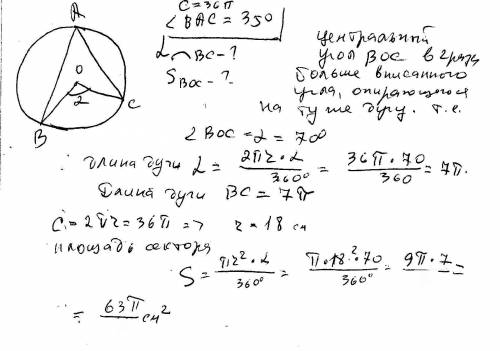 A
O
2
B
C
C = 36π
∠BAC = 350
L ⌒ BC - ?
S BOC - ?
центральный
угол BOC в 2 раза
больше вписанного
угла, опирающегося
на ту же дугу. т.е.
∠BOC = α = 70°
длина дуги L = 2πr · α / 360° = 36π · 70 / 360 = 7π.
Длина дуги BC = 7π
C = 2πr = 36π => r = 18 см
площадь сектора
S = πr² · α / 360° = π · 18² · 70 / 360° = 9π · 7 =
= 63π см²